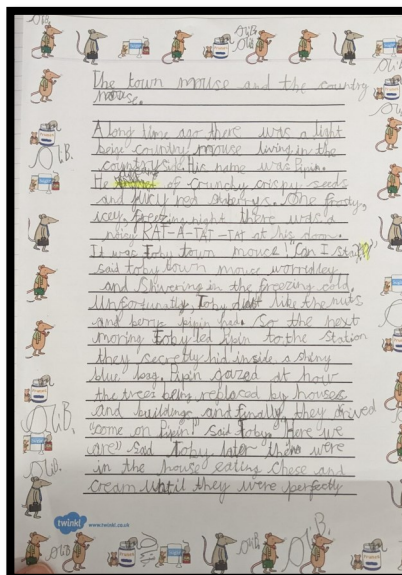 The town mouse and the country
mouse.
A long time ago there was a light
beige country mouse living in the
countryside. His name was Pipin.
He of crunchy crispy seeds
and juicy red berrys. One frosty,
icey freezing night there was a
noisy RAT-A-TAT-TAT at his door.
It was Toby town mouse. "Can I stay?"
said Toby town mouse worridley
and shivering in the freezing cold.
Unfortunatly, Toby didn't like the nuts
and berrys pipin had. So the next
morning Toby led Pipin to the station
they secretly hid inside a shiny
blue bag. Pipin gazed at how
the trees being replaced by houses
and buildings and finally they arived
"come on Pipin" said Toby "Here we
are" said Toby later they were
in the house eating chese and
cream until they were perfectly
twinkl www.twinkl.co.uk